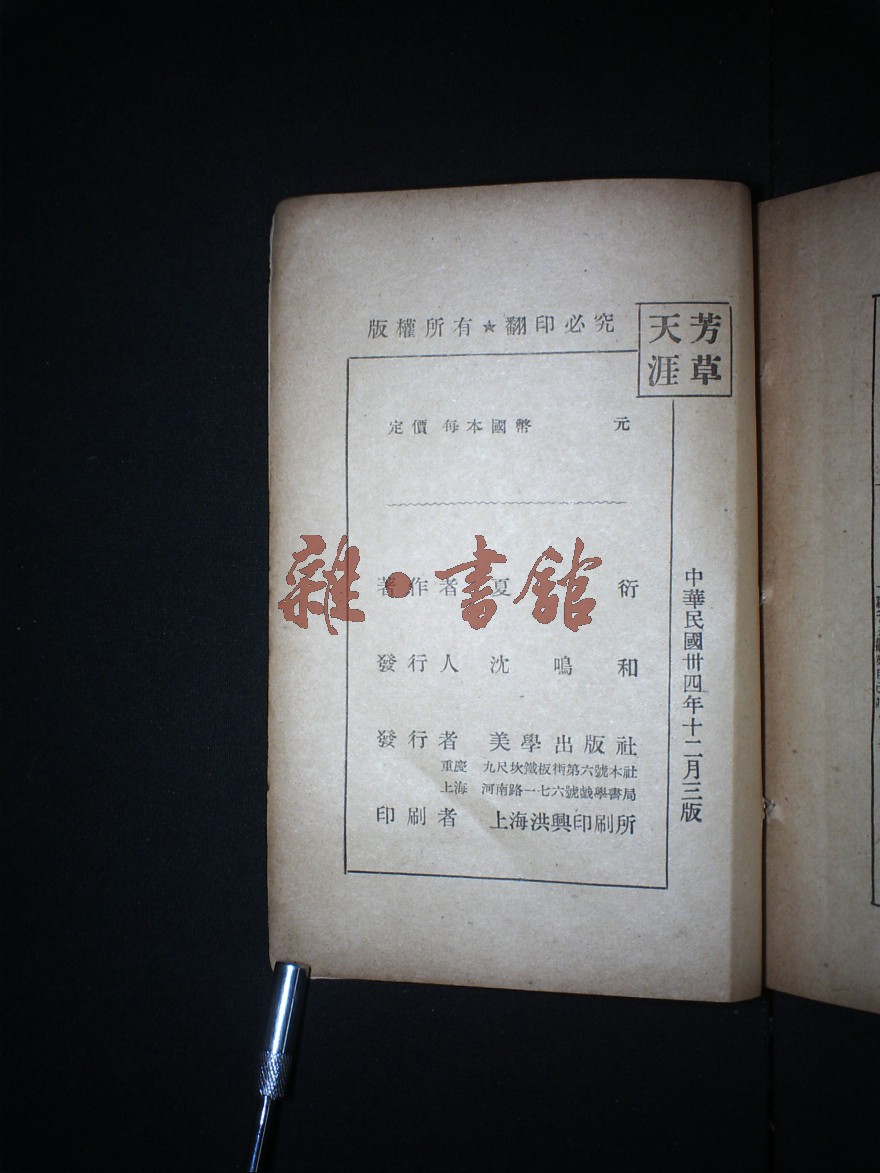 芳草
天涯
版權所有★翻印必究
定價 每本國幣 元
著作者 夏 衍
發行人 沈 鳴 和
發行者 美學出版社
重慶 九尺坎鐵板街第六號本社
上海 河南路一七六號戲學書局
印刷者 上海洪興印刷所
中華民國卅四年十二月三版
雜·書館